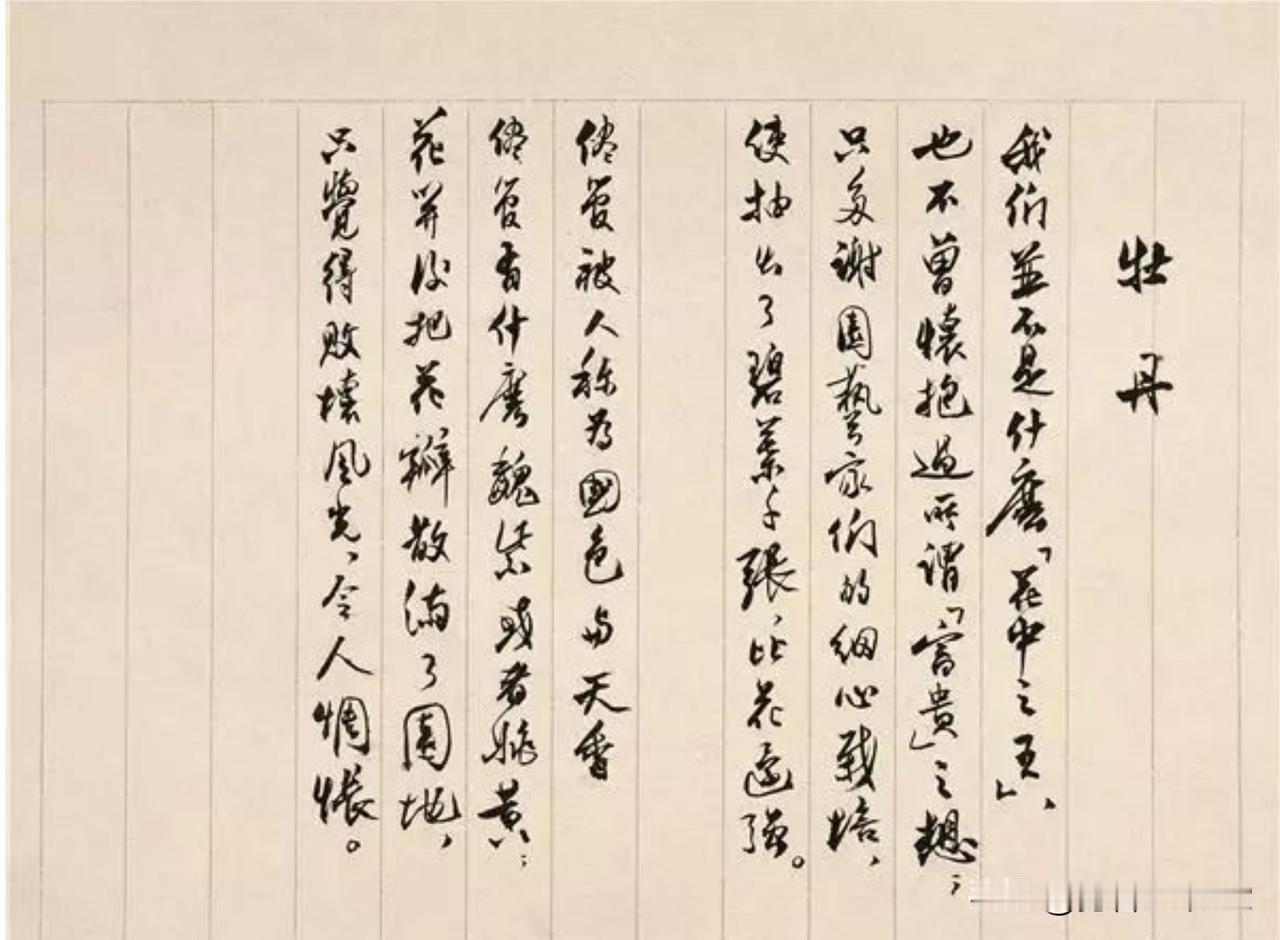 牡丹
我们並不是什麽「花中之王」、
也不曾懷抱過所谓「富貴」之想；
只多谢園藝家们的细心栽培、
使抽出了碧葉千張、比花還强。
儘管被人称为國色与天香
儘管有什麽魏紫或者姚黄；
花并没把花瓣散满了園地、
只覺得败壞風光、令人惆悵。